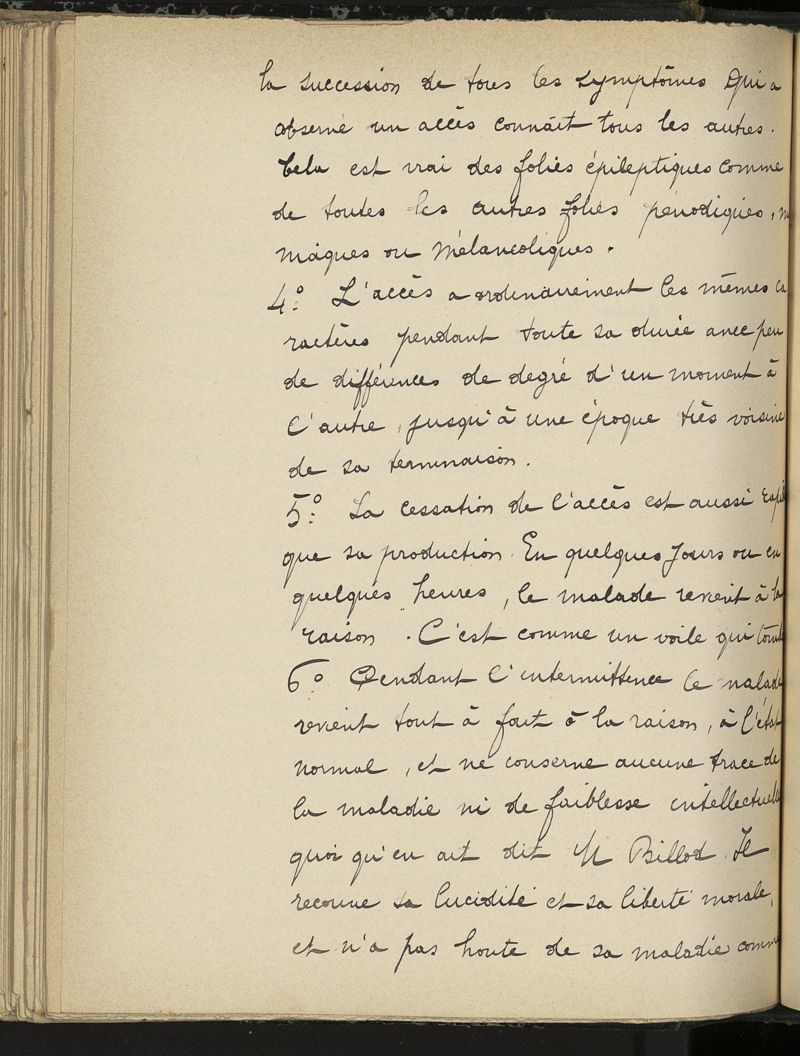 la succession de tous les symptômes Qui a
observé un accès connaît tous les autres.
Cela est vrai des folies épileptiques comme
de toutes les autres folies périodiques,
niaques ou mélancoliques.
4.° L'accès a ordinairement les mêmes ca
ractères pendant toute sa durée avec peu
de différences de degré d'un moment à
l'autre, jusqu'à une époque très voisine
de sa terminaison.
5.° La cessation de l'accès est aussi rapide
que sa production. En quelques jours ou en
quelques heures, le malade revient à la
raison. C'est comme un voile qui tombe
6.° Pendant l'intermittence le malade
revient tout à fait à la raison, à l'état
normal, et ne conserve aucune trace de
la maladie ni de faiblesse intellectuelle
quoi qu'en ait dit M Billod. Il
recouvre sa lucidité et sa liberté morale,
et n'a pas honte de sa maladie comme